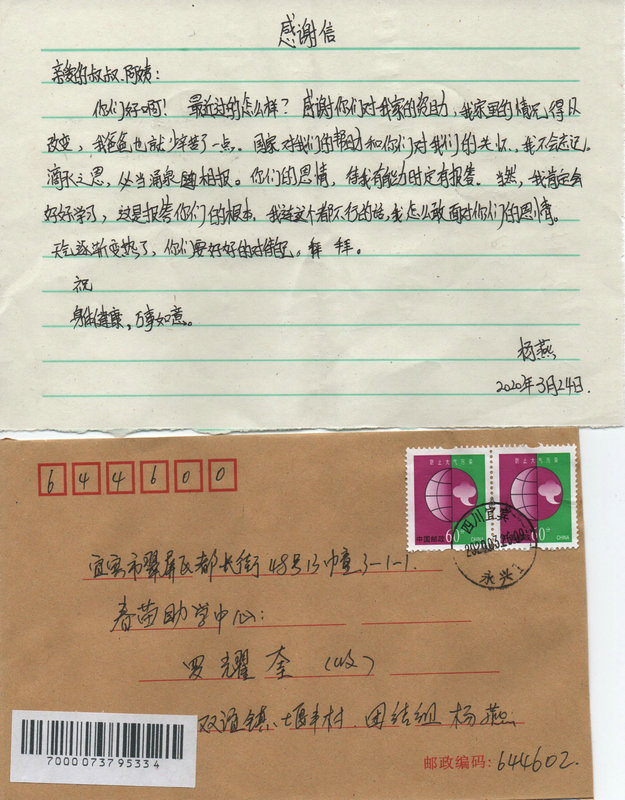 感谢信
亲爱的叔叔、阿姨:
你们好啊! 最近过的怎么样? 感谢你们对我家的资助,我家里的情况得以
改变,我爸爸也就少辛苦了一点。国家对我们的帮助和你们对我们的关怀,我不会忘记。
滴水之恩,必当涌泉相报。你们的恩情,待我有能力时定有报答。当然,我肯定会
好好学习,这是报答你们的根本,我连这个都不行的话,我怎么敢面对你们的恩情。
天气逐渐变热了,你们要好好的对待自己。拜拜。
祝
身体健康,万事如意。
杨燕
2020年3月24日.
644600
防止大气污染
防止大气污染
中国邮政 60分 CHINA
60分 CHINA
四川宜宾
2020.03.26.09
永兴
宜宾市翠屏区都长街48号13幢3-1-1.
春苗助学中心:
罗耀奎(收)
双谊镇、堰村、团结组 杨燕
7000073795334
邮政编码:644602.